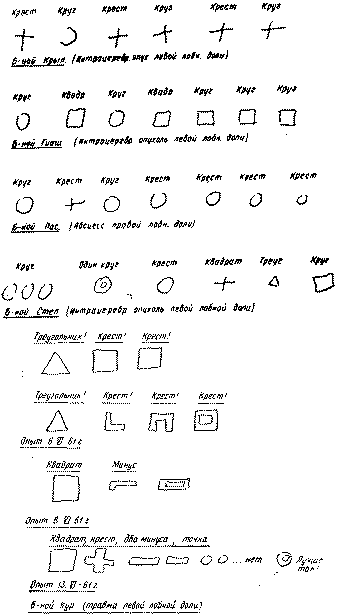 Крест Круг Крест Круг Крест Круг
Б-ной Крыл. (Интрацеребр. опух. левой лобн. доли)
Круг Квадр Круг Квадр Круг Круг Круг
Б-ной Гиаш (Интрацеребр опухоль левой лобн. доли)
Круг Крест Круг Крест Крест Крест Крест
Б-ной Пас. (Абсцесс правой лобн. доли)
Круг Один круг Крест Квадрат Треуг Круг
Б-ной Степ (Интрацеребр опухоль левой лобной доли)
Треугольник! Крест! Крест!
Треугольник! Крест! Крест! Крест!
Опыт 6 VI 61 г
Квадрат Минус
Опыт 9 VI 61 г
Квадрат, крест, два минуса, точка
... нет,
Опыт 13. VI - 61 г.
Б-ной Кур (травма левой лобной доли)